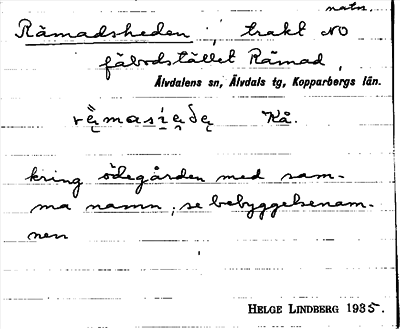 natn.
Rämadsheden, trakt NO
fäbodstället Rämad,
Älvdalens sn, Älvdals tg, Kopparbergs län.
Kå.
kring ödegården med sam-
ma namn; se bebyggelsenam-
nen
HELGE LINDBERG 1935.